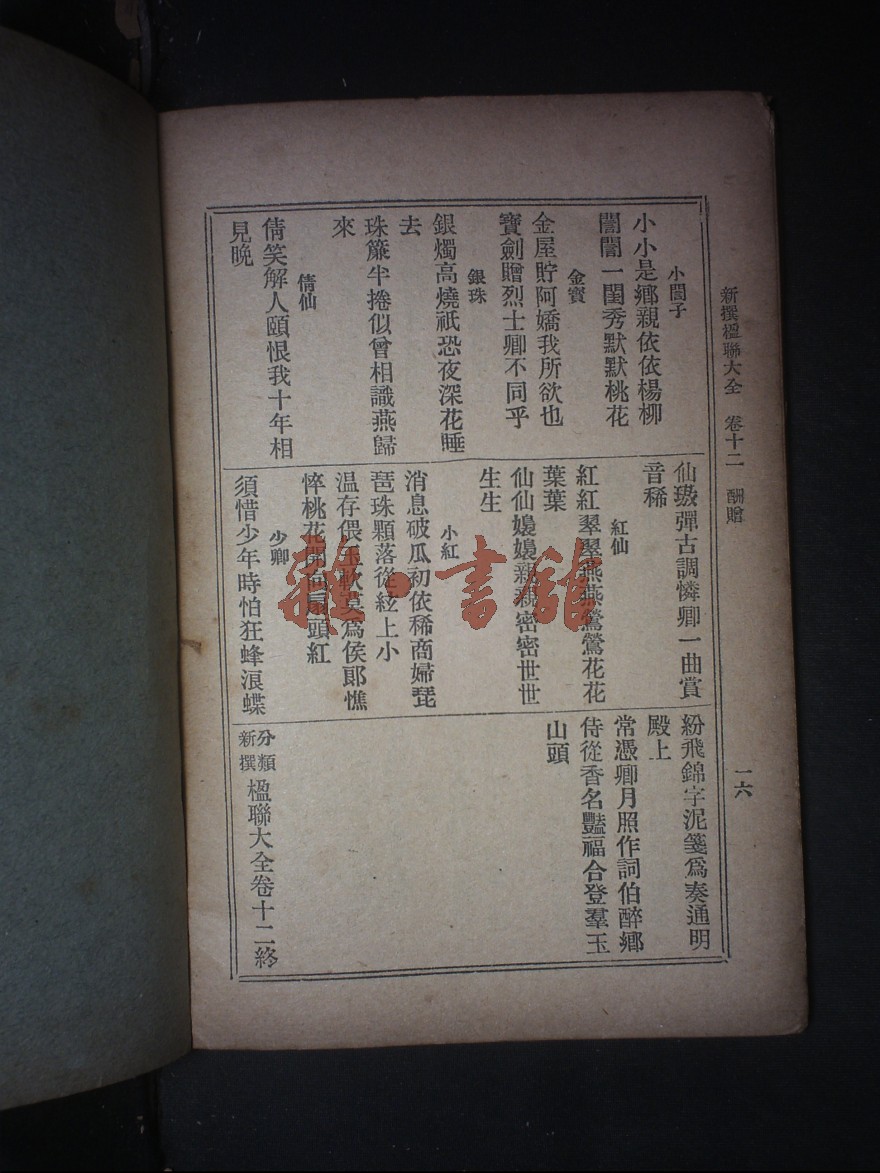 新撰楹聯大全　卷十二　酬贈
一六
小閨子
小小是鄉親依依楊柳
誾誾一閨秀默默桃花
金寶
金屋貯阿嬌我所欲也
寶劍贈烈士卿不同乎
銀珠
銀燭高燒祇恐夜深花睡
去
珠簾半捲似曾相識燕歸
來
倩仙
倩笑解人頤恨我十年相
見晚
仙璈彈古調憐卿一曲賞
音稀
紅仙
紅紅翠翠燕燕鶯鶯花花
葉葉
仙仙嬝嬝親親密密世世
生生
小紅
消息破瓜初依稀商婦琵
琶珠顆落從絃上小
温存偎玉軟莫爲侯郞憔
悴桃花開向扇頭紅
少卿
須惜少年時怕狂蜂浪蝶
紛飛錦字泥箋爲奏通明
殿上
常憑卿月照作詞伯醉鄉
侍從香名豔福合登羣玉
山頭
分類新撰楹聯大全卷十二終
雜·書館